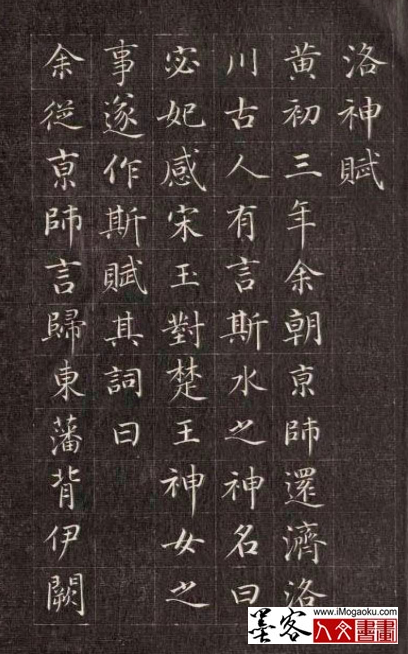 洛神賦
黄初三年余朝亰師還濟洛
川古人有言斯水之神名曰
宓妃感宋玉對楚王神女之
事遂作斯賦其詞曰
余從亰師言歸東藩背伊闕
www.iMogaoku.com
墨客 人文書畫